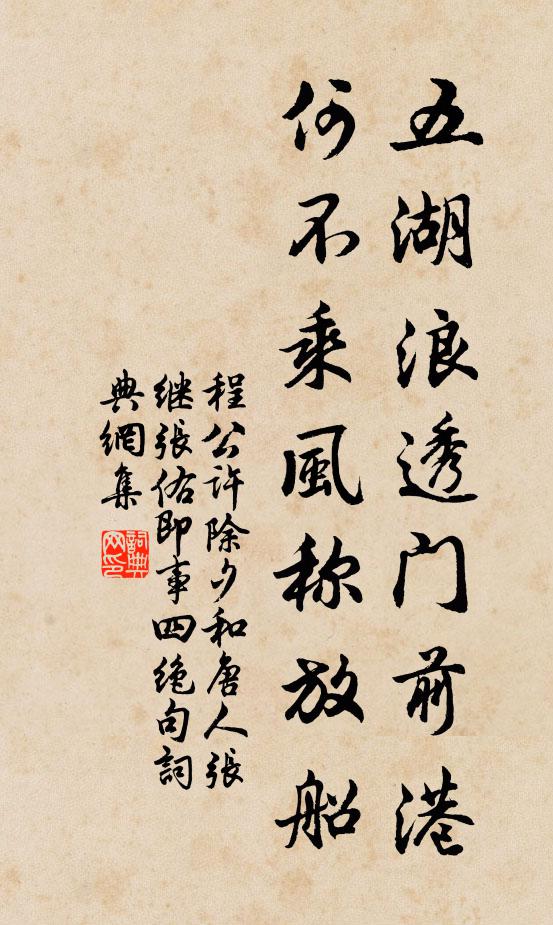 五湖浪透门前港
何不乘風称放船
程公许除夕和唐人張
继張佑即事四绝句詞
典網集
詞典网印